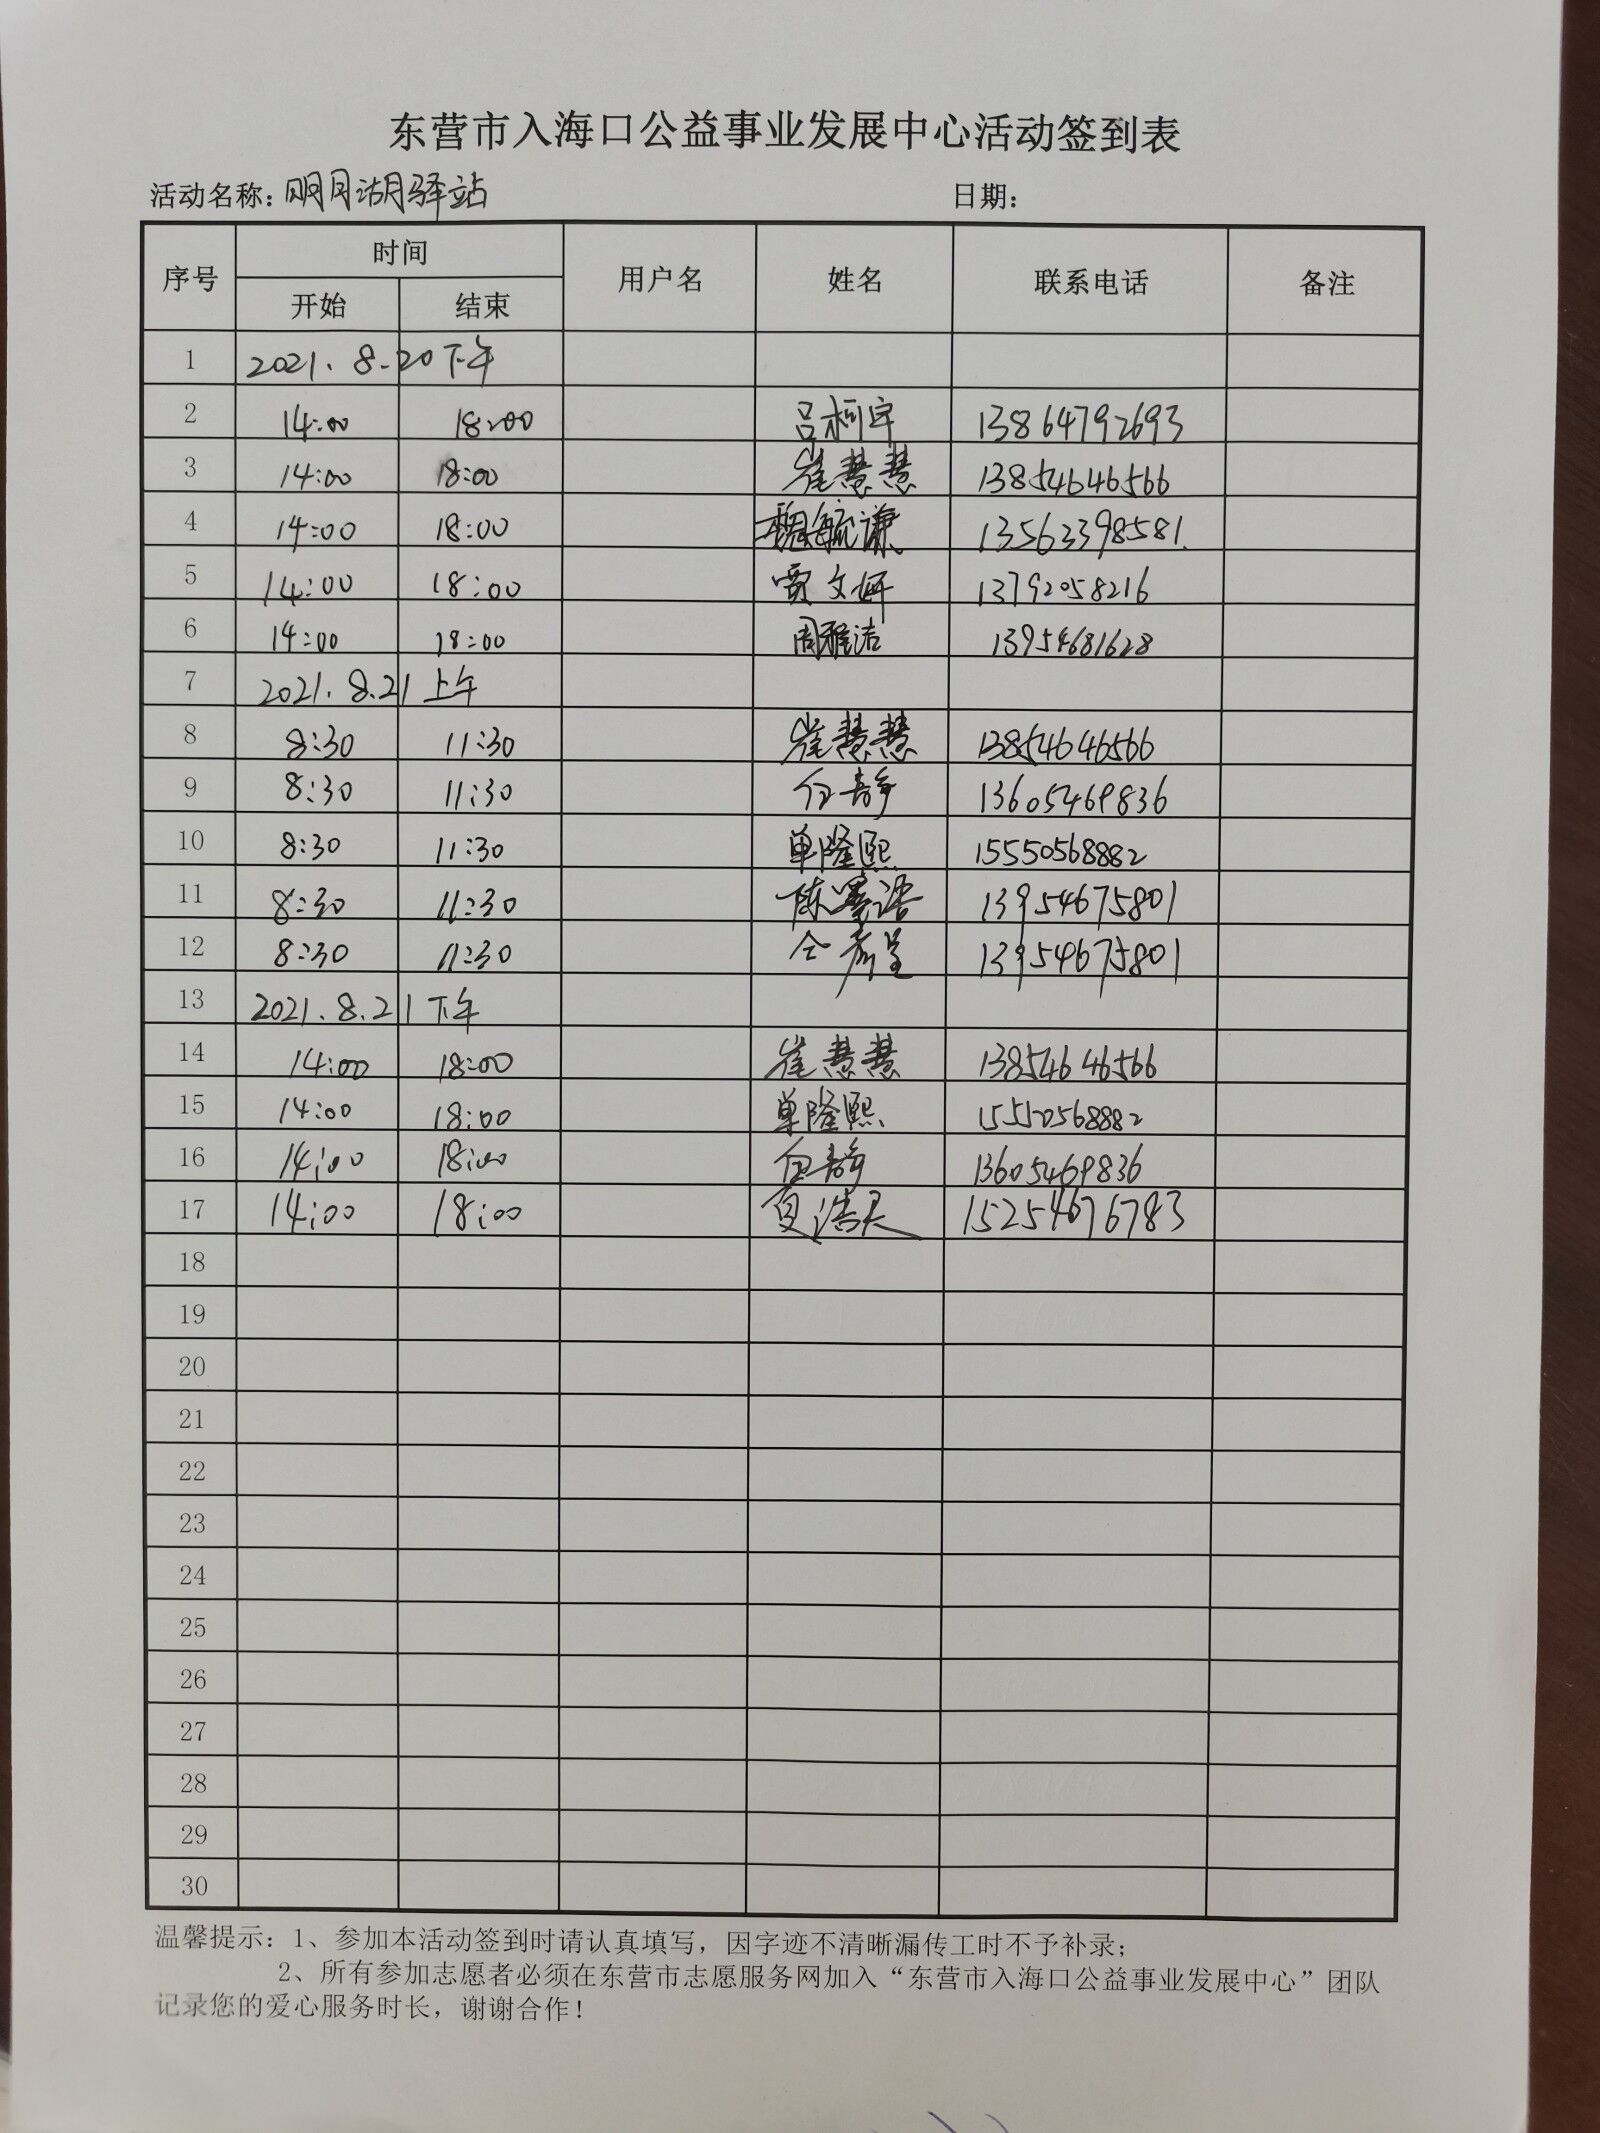 东营市入海口公益事业发展中心活动签到表
活动名称：明月湖驿站 日期：
序号 时间 用户名 姓名 联系电话 备注
开始 结束
1 2021.8.20下午
2 14:00 18:00 吕柯宇 13864792693
3 14:00 18:00 崔慧慧 13854646566
4 14:00 18:00 魏毓谦 13563398581.
5 14:00 18:00 贾文妍 13792058216
6 14:00 18:00 周雅洁 13954681628
7 2021.8.21上午
8 8:30 11:30 崔慧慧 13854646566
9 8:30 11:30 任静 13605469836
10 8:30 11:30 单隆熙 15550568882
11 8:30 11:30 陈墨语 13954675801
12 8:30 11:30 13954675801
13 2021.8.21下午
14 14:00 18:00 崔慧慧 13854646566
15 14:00 18:00 单隆熙 15550568882
16 14:00 18:00 任静 13605469836
17 14:00 18:00 15254676783
18
19
20
21
22
23
24
25
26
27
28
29
30
温馨提示：1、参加本活动签到时请认真填写，因字迹不清晰漏传工时不予补录；
2、所有参加志愿者必须在东营市志愿服务网加入“东营市入海口公益事业发展中心”团队
记录您的爱心服务时长，谢谢合作！